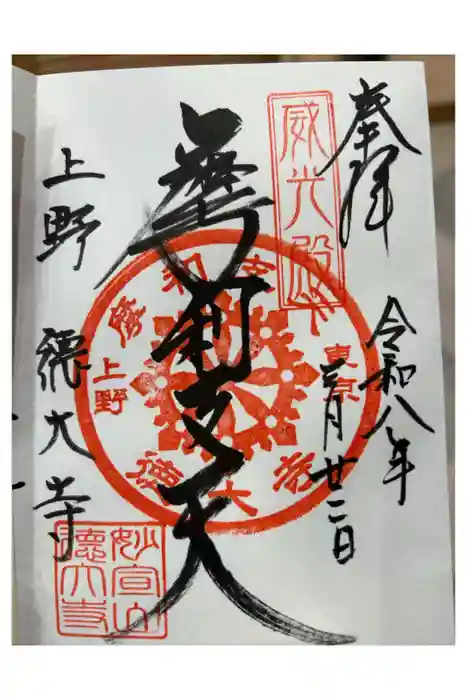 奉拝
令和八年
三月廿二日
威光殿
摩利支天
上野 徳大寺
摩利支天
東京
上野
徳大寺
妙宣山
徳大寺